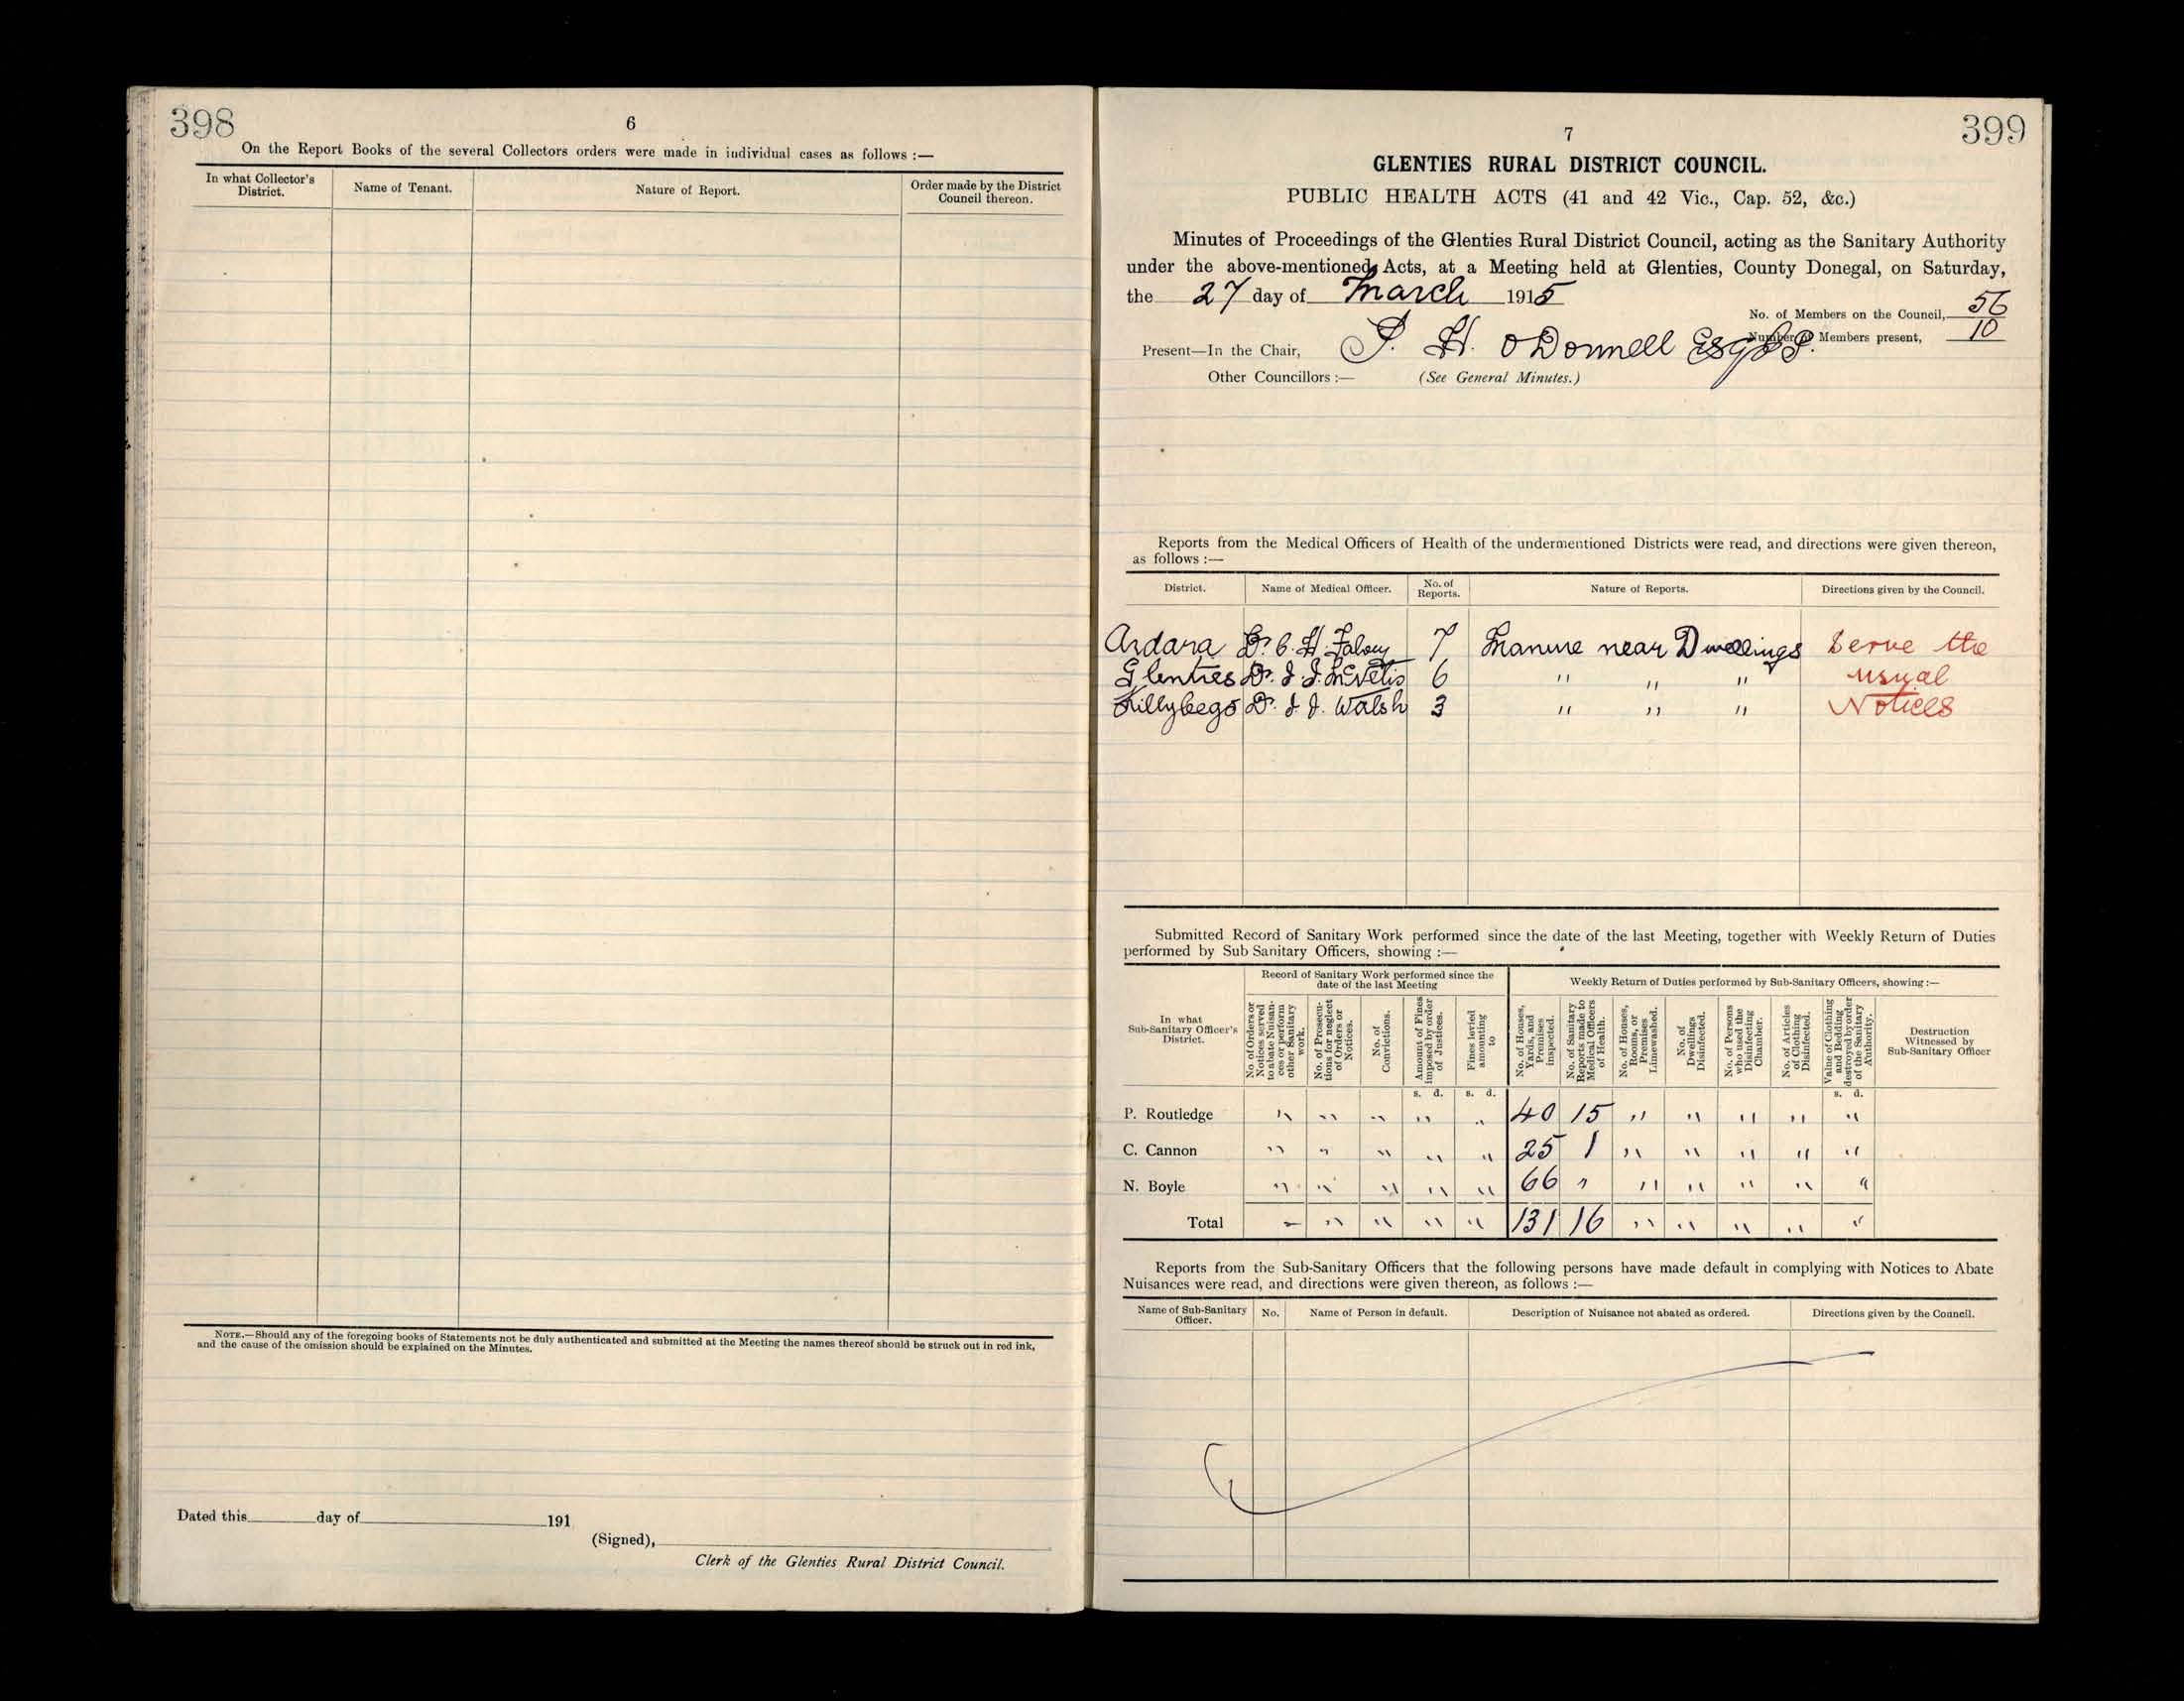 398
6
On the Report Books of the several Collectors orders were made in individual cases as follows :—
In what Collector's District.
Name of Tenant.
Nature of Report.
Order made by the District Council thereon.
NOTE.—Should any of the foregoing books of Statements not be duly authenticated and submitted at the Meeting the names thereof should be struck out in red ink,
and the cause of the omission should be explained on the Minutes.
Dated this day of 191
(Signed),
Clerk of the Glenties Rural District Council.
399
7
GLENTIES RURAL DISTRICT COUNCIL.
PUBLIC HEALTH ACTS (41 and 42 Vic., Cap. 52, &c.)
Minutes of Proceedings of the Glenties Rural District Council, acting as the Sanitary Authority
under the above-mentioned Acts, at a Meeting held at Glenties, County Donegal, on Saturday,
the 27 day of March 1915
No. of Members on the Council, 56
Number of Members present, 10
Present—In the Chair, P. H. O'Donnell Esq J.P.
Other Councillors :— (See General Minutes.)
Reports from the Medical Officers of Health of the undermentioned Districts were read, and directions were given thereon,
as follows :—
District. Name of Medical Officer. No. of Reports. Nature of Reports. Directions given by the Council.
Ardara Dr. C. H. 7 Manure near Dwellings Serve the
Glenties Dr. J. J. 6 " " " usual
Killybegs Dr. J. J. Walsh 3 " " " Notices
Submitted Record of Sanitary Work performed since the date of the last Meeting, together with Weekly Return of Duties
performed by Sub Sanitary Officers, showing :—
In what Sub-Sanitary Officer's District.
Record of Sanitary Work performed since the date of the last Meeting
Weekly Return of Duties performed by Sub-Sanitary Officers, showing :—
No. of Orders or Notices served to abate Nuisances or perform other Sanitary work.
No. of Prosecutions for neglect of Orders or Notices.
No. of Convictions.
Amount of Fines imposed by order of Justices.
Fines levied amounting to
No. of Houses, Yards, and Premises inspected.
No. of Sanitary Reports made to Medical Officers of Health.
No. of Houses, Rooms, or Premises Limewashed.
No. of Dwellings Disinfected.
No. of Persons who used the Disinfecting Chamber.
No. of Articles of Clothing Disinfected.
Value of Clothing and Bedding destroyed by order of the Sanitary Authority.
Destruction Witnessed by Sub-Sanitary Officer
s. d. s. d. s. d.
P. Routledge " " " " " 40 15 " " " " "
C. Cannon " " " " " 25 1 " " " " "
N. Boyle " " " " " 66 " " " " " "
Total " " " " " 131 16 " " " " "
Reports from the Sub-Sanitary Officers that the following persons have made default in complying with Notices to Abate
Nuisances were read, and directions were given thereon, as follows :—
Name of Sub-Sanitary Officer. No. Name of Person in default. Description of Nuisance not abated as ordered. Directions given by the Council.